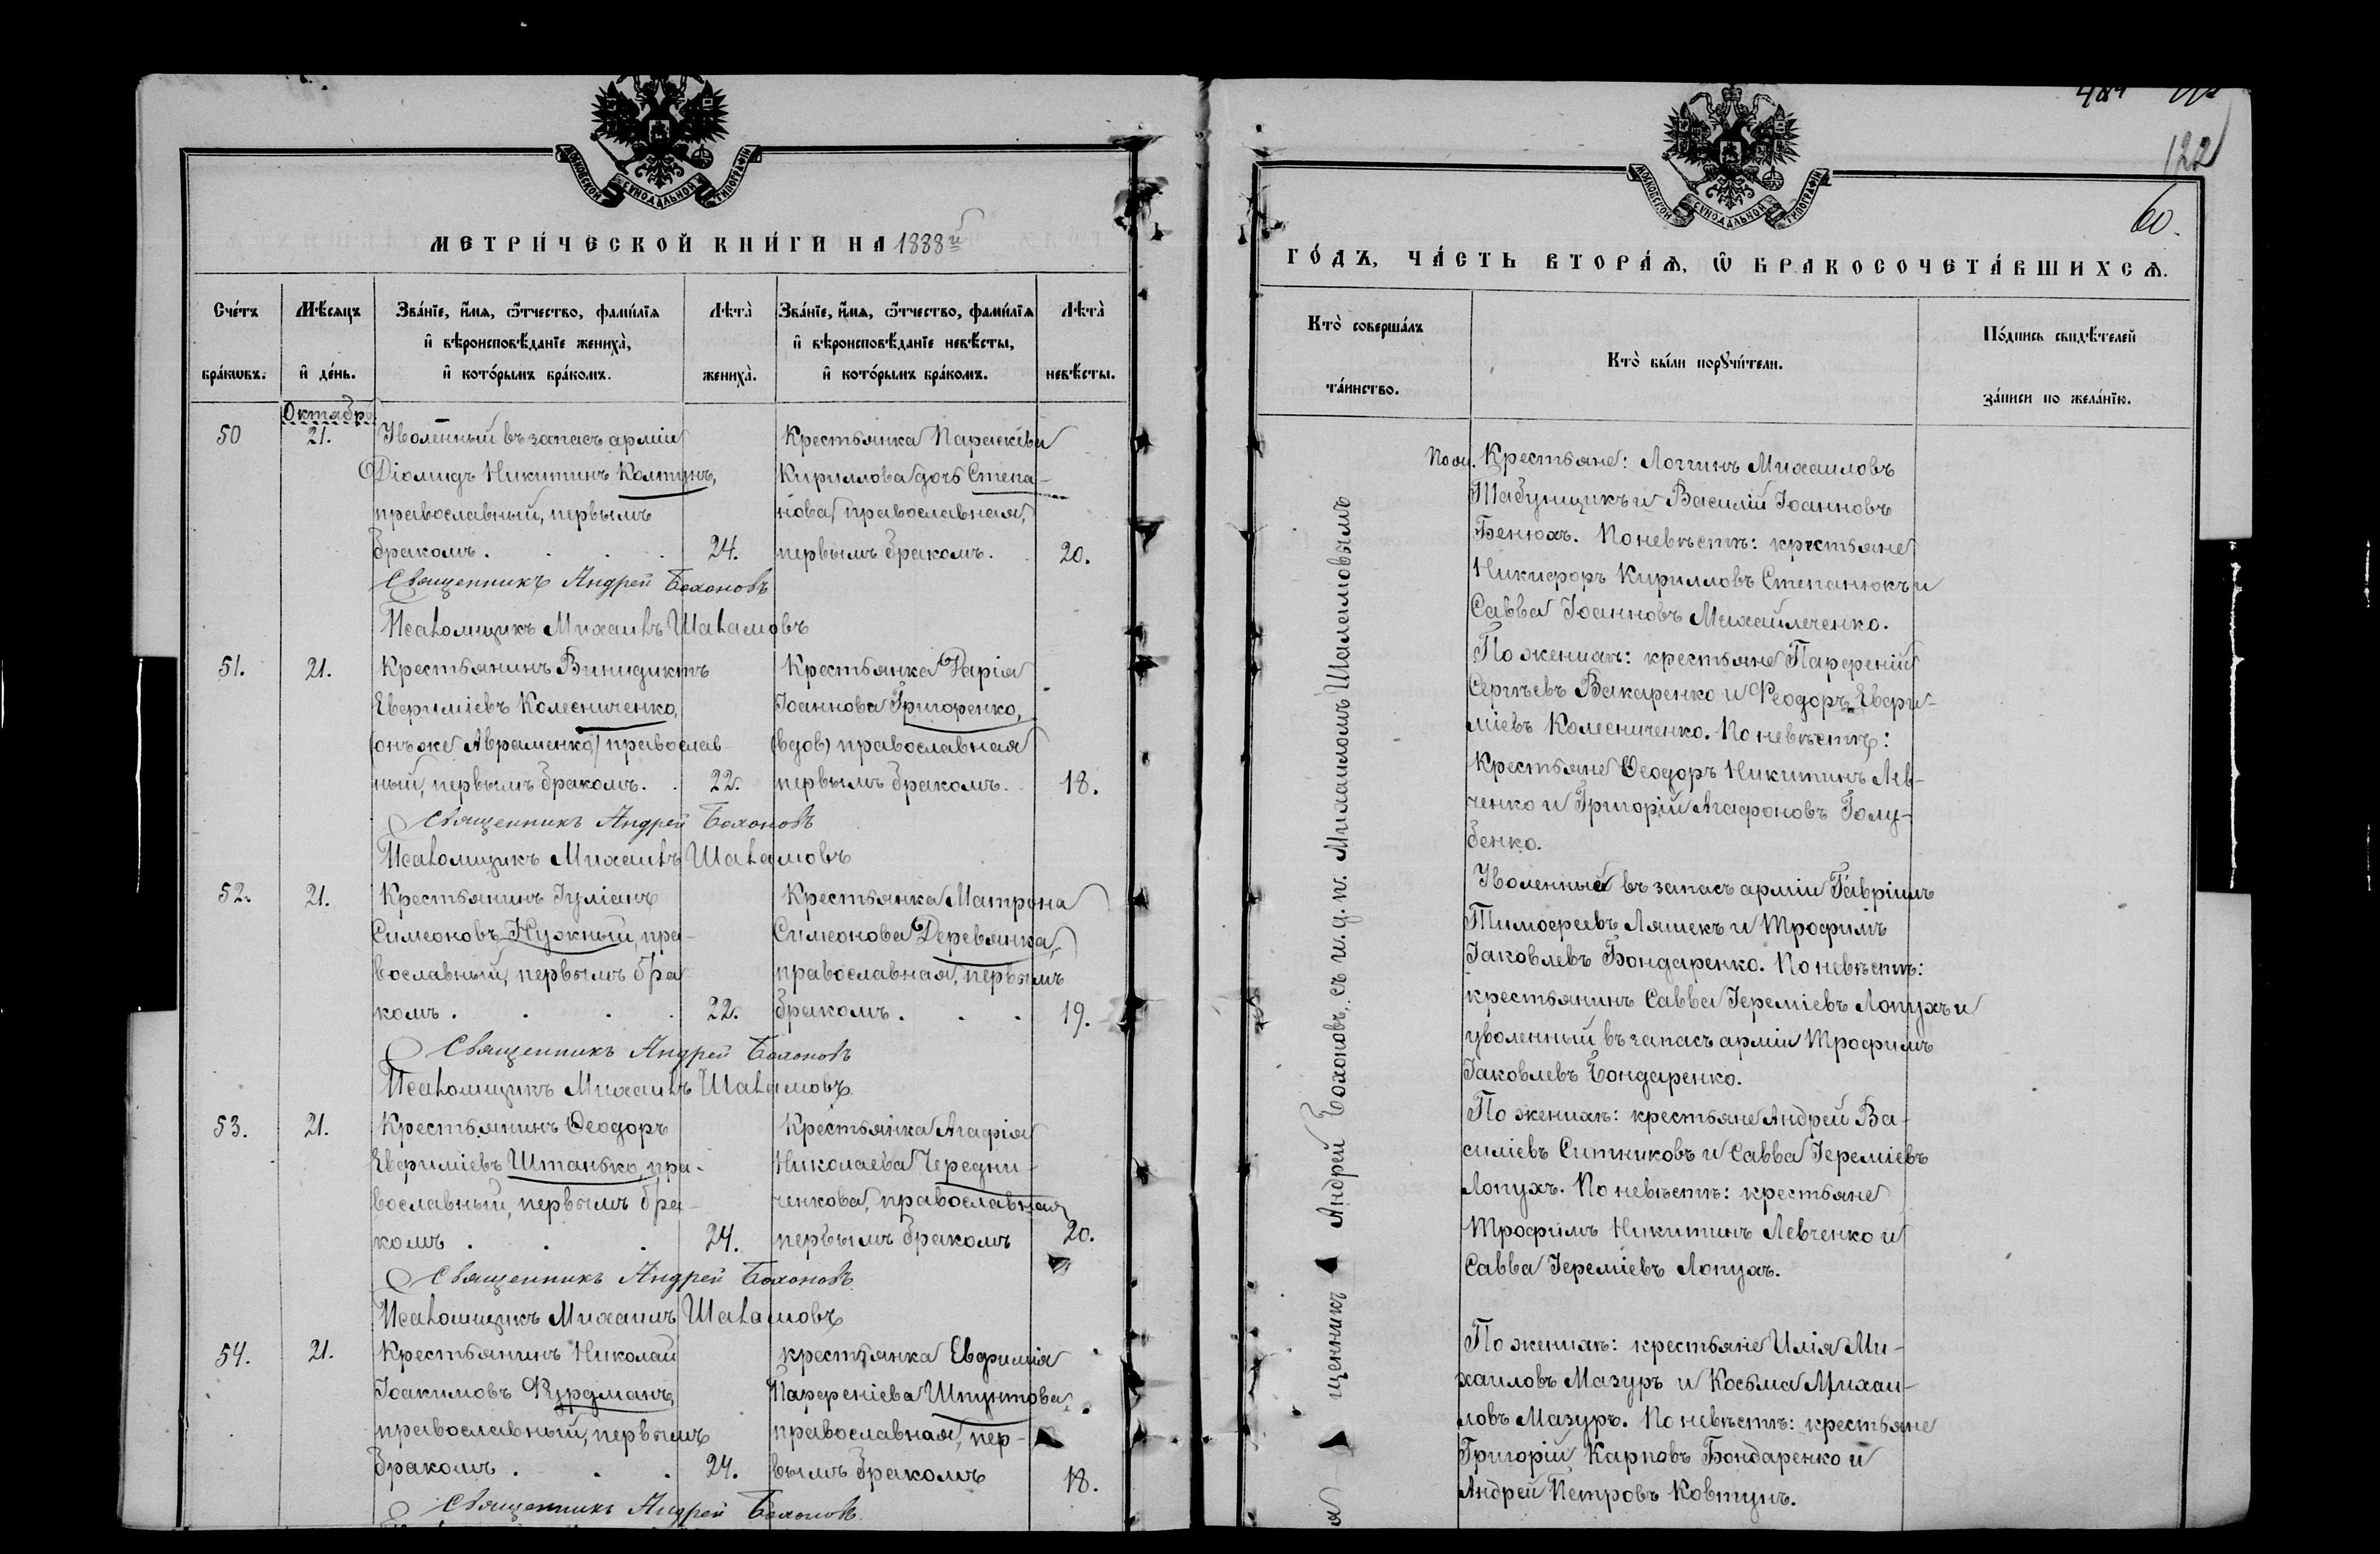 МОСКОВСКОЙ СѴНОДАЛЬНОЙ ТИПОГРАФІИ
МЕТРИ́ЧЕСКОЙ КНИ́ГИ НА 1888й
Сче́тъ бра́кѡвъ.
Мѣ́сяцъ и҆ де́нь.
Зва́нїе, и҆́мя, ѻ҆́тчество, фами́лїя
и҆ вѣроисповѣ́данїе жениха̀,
и҆ кото́рымъ бра́комъ.
Лѣта̀ жениха̀.
Зва́нїе, и҆́мя, ѻ҆́тчество, фами́лїя
и҆ вѣроисповѣ́данїе невѣ́сты,
и҆ кото́рымъ бра́комъ.
Лѣта̀ невѣ́сты.
Октябрь
50
21.
Уволенный въ запасъ арміи
Діомидъ Никитинъ Колтунъ,
православный, первымъ
бракомъ. . . .
24.
Крестьянка Параскева
Кириллова дочь Степа-
нова, православная,
первымъ бракомъ.
20.
Священникъ Андрей Бохоновъ
Псаломщикъ Михаилъ Шаламовъ
51.
21.
Крестьянинъ Винидиктъ
Евфиміевъ Колесниченко,
(онъ же Авраменко) православ-
ный, первымъ бракомъ. .
22.
Крестьянка Дарія
Іоаннова Григоренко,
(вдов) православная
первымъ бракомъ.
18.
Священникъ Андрей Бохоновъ
Псаломщикъ Михаилъ Шаламовъ
52.
21.
Крестьянинъ Іуліанъ
Симеоновъ Нужный, пра-
вославный, первымъ бра
комъ. . . .
22.
Крестьянка Матрона
Симеонова Деревянка,
православная, первымъ
бракомъ. . .
19.
Священникъ Андрей Бохоновъ
Псаломщикъ Михаилъ Шаламовъ
53.
21.
Крестьянинъ Ѳеодоръ
Евфиміевъ Штанько, пра-
вославный, первымъ бра-
комъ . . .
24.
Крестьянка Агафія
Николаева Чередни-
ченкова, православная
первымъ бракомъ
20.
Священникъ Андрей Бохоновъ
Псаломщикъ Михаилъ Шаламовъ
54.
21.
Крестьянинъ Николай
Іоакимовъ Курдманъ,
православный, первымъ
бракомъ . . .
24.
крестьянка Евфимія
Парфеніева Шпунтова,
православная, пер-
вымъ бракомъ
18.
Священникъ Андрей Бохоновъ
122
60.
МОСКОВСКОЙ СѴНОДАЛЬНОЙ ТИПОГРАФІИ
ГО́ДЪ, ЧА́СТЬ ВТОРА́Я, Ѡ҆ БРАКОСОЧЕТА́ВШИХСЯ.
Кто̀ соверша́лъ
та́инство.
Кто̀ бы́ли порꙋчи́тели.
По́дпись свидѣ́телей
за́писи по жела́нїю.
щенникъ Андрей Бохоновъ, съ и. д. п. Михаиломъ Шаламовымъ
По жен. Крестьяне: Логгинъ Михаиловъ
Табунщикъ и Василій Іоанновъ
Бенюхъ. По невѣстѣ: крестьяне
Никифоръ Кирилловъ Степанюкъ и
Савва Іоанновъ Михайлеченко.
По женихѣ: крестьяне Парфеній
Сергѣевъ Вакаренко и Феодоръ Евфи-
міевъ Колесниченко. По невѣстѣ:
Крестьяне Ѳеодоръ Никитинъ Лев-
ченко и Григорій Агафоновъ Голу-
бенко.
Уволенный въ запасъ арміи Гавріилъ
Тимофеевъ Ляшекъ и Трофимъ
Іаковлевъ Бондаренко. По невѣстѣ:
крестьянинъ Савва Іереміевъ Лопухъ и
уволенный въ запасъ арміи Трофимъ
Іаковлевъ Бондаренко.
По женихѣ: крестьяне Андрей Ва-
силіевъ Ситниковъ и Савва Іереміевъ
Лопухъ. По невѣстѣ: крестьяне
Трофимъ Никитинъ Левченко и
Савва Іереміевъ Лопухъ.
По женихѣ: крестьяне Илія Ми-
хаиловъ Мазуръ и Косьма Михаи-
ловъ Мазуръ. По невѣстѣ: крестьяне
Григорій Карповъ Бондаренко и
Андрей Петровъ Ковтунъ.